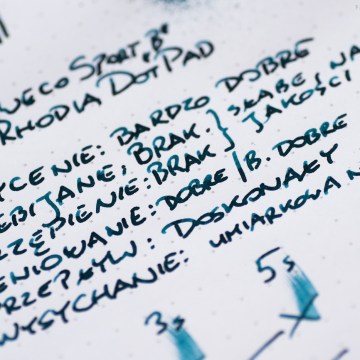 WECO SPORT "B"
RHODIA DOT PAD
YCENIE: BARDZO DOBRE
EBIJANIE, BRAK. } SŁABE, NA
RZĘPIENIE: BRAK } JAKOŚCI
ENIOWANIE: DOBRE / B. DOBRE
RZEPŁYW: DOSKONAŁY
WYSYCHANIE: UMIARKOWAN
3s 5s